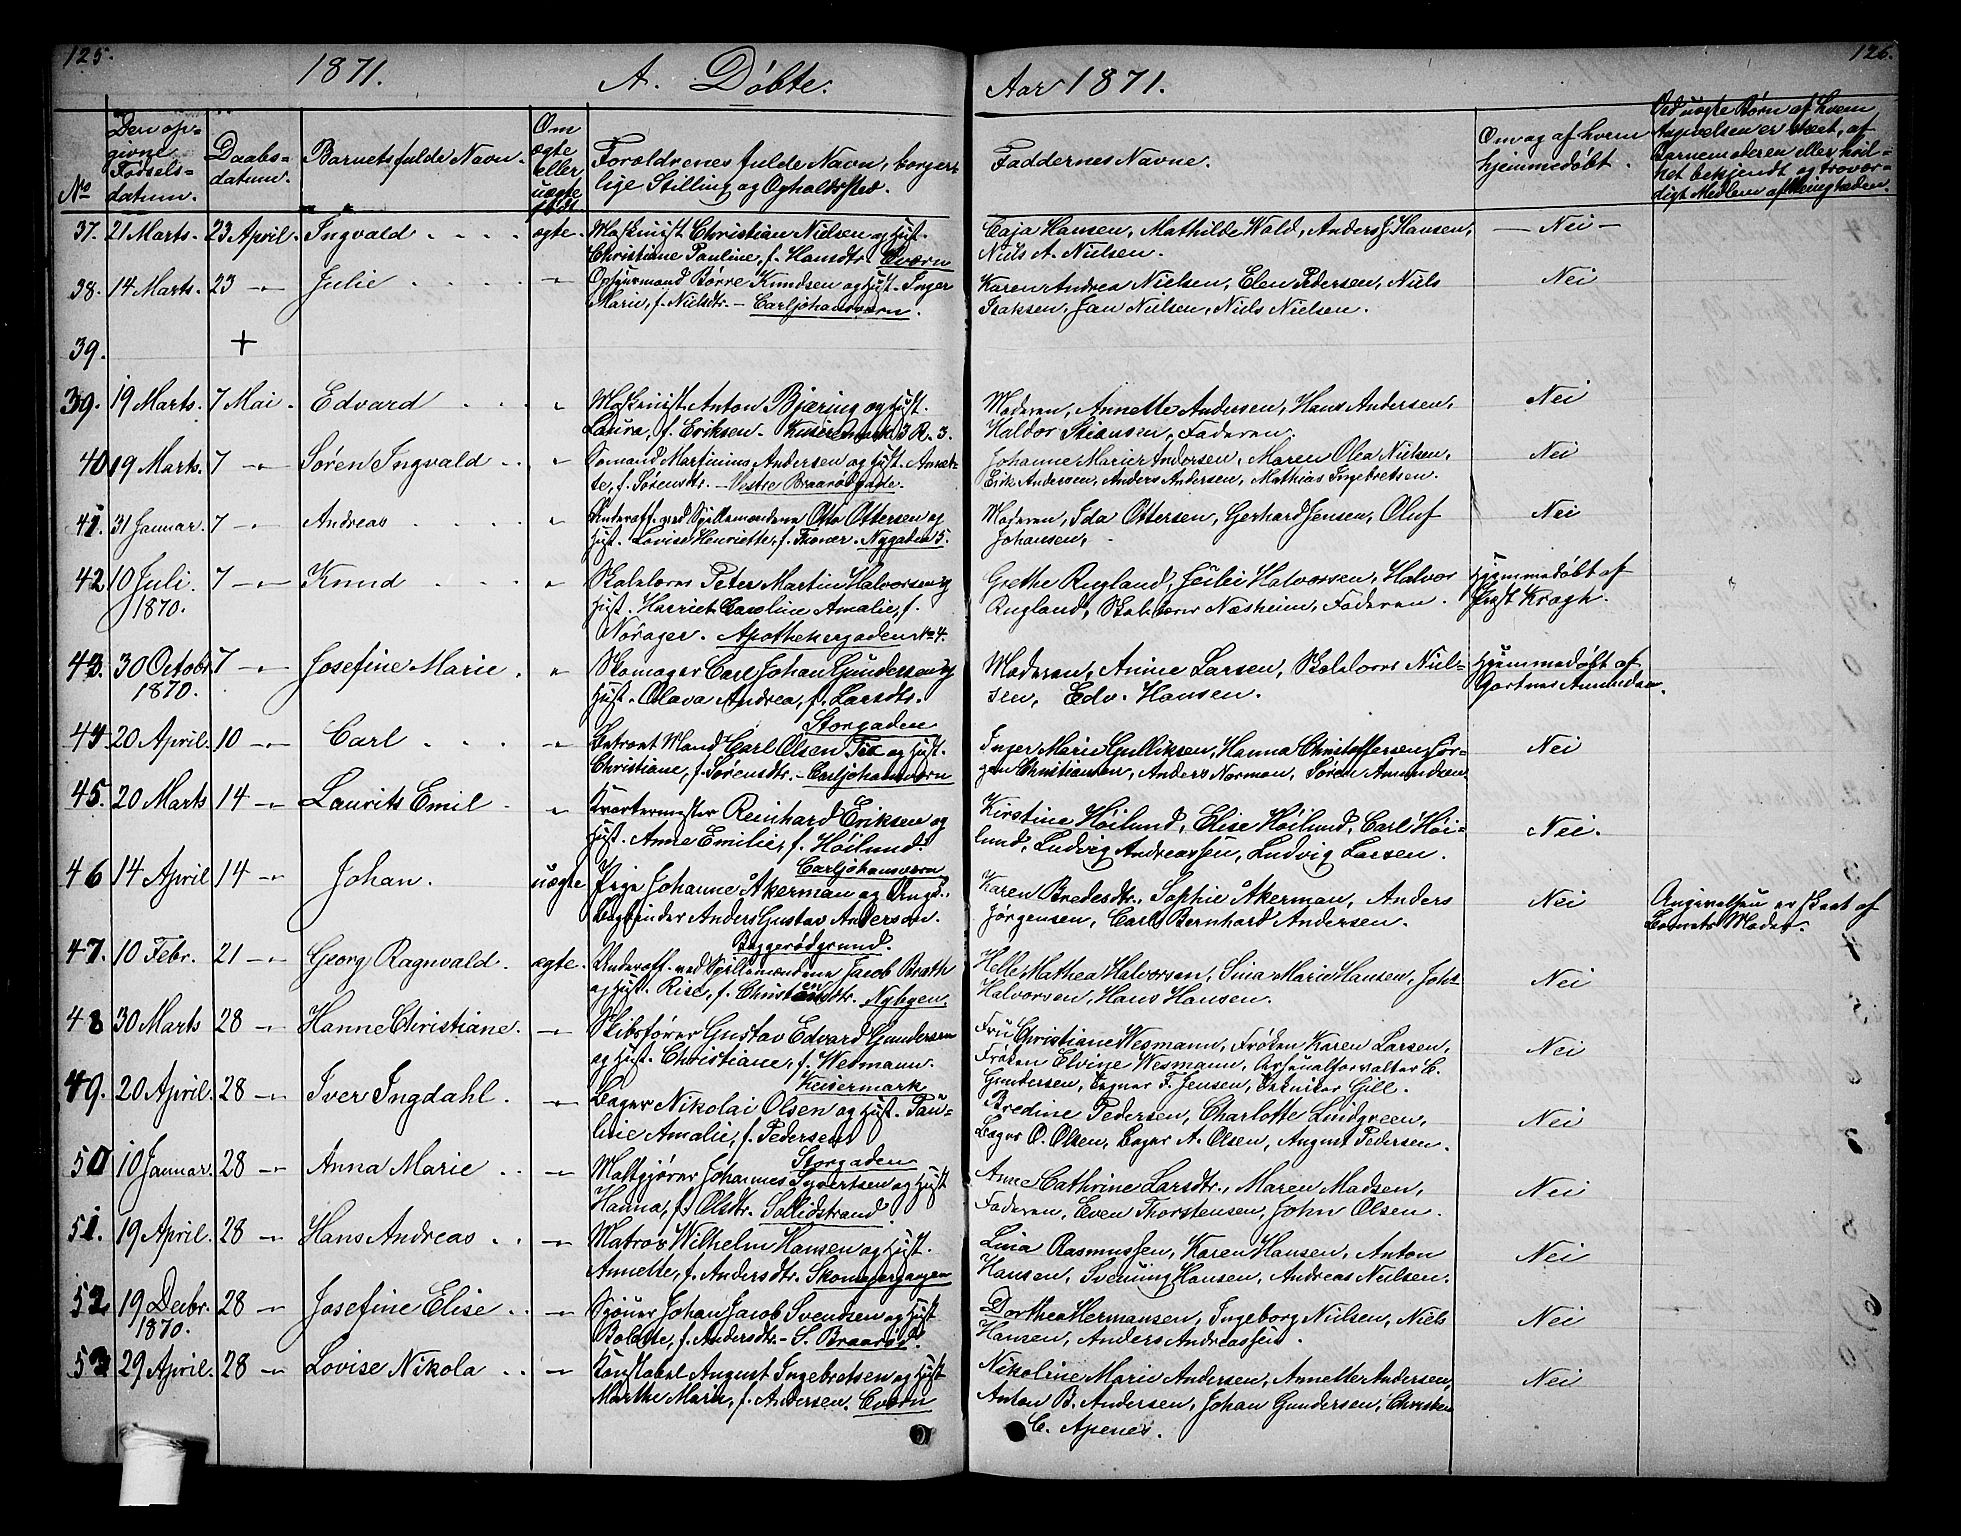 125.
1871.
A. Døbte.
Aar 1871.
126.
No
Den op-
givne
Fødsels-
datum.
Daabs-
datum.
Barnets fulde Navn.
Om
ægte
eller
uægte
født
Forældrenes fulde Navn, borger-
lige Stilling og Opholdssted.
Faddernes Navne.
Om og af hvem
hjemmedøbt.
Ved uægte Børn af hvem
Angivelsen er skeet, af
Barnemoderen eller hvil-
ket bekjendt og trovær-
digt Medlem af Menigheden.
37. 21 Marts. 23 April. Ingvald ægte. Maskinist Christian Nielsen og Hust.
Christiane Pauline, f. Hansdtr. Cværn
Caja Hansen, Mathilde Wald, Anders J. Hansen,
Niels A. Nielsen.
— Nei —
38. 14 Marts. 23 —"— Julie —"— Opsynsmand Børre Knudsen og Hust. Inger
Marie, f. Nielsdtr. — Carljohansværn.
Karen Andrea Nielsen, Elen Pedersen, Niels
Isaksen, Jan Nielsen, Niels Nielsen.
Nei
39. +
39. 19 Marts. 7 Mai. Edvard " Maskinist Anton Bjæring og Hust.
Laura, f. Eriksen. Keisermark 3 R. 3.
Moderen, Annette Andersen, Hans Andersen,
Haldor Stiansen, Faderen.
Nei
40 19 Marts. 7 —"— Søren Ingvald —"— Sømand Martinius Andersen og Hust. Annet-
te, f. Sørensdtr. — Vestre Braarødgade.
Johanne Marie Andersen, Maren Olea Nielsen,
Eirk Andersen, Anders Andersen, Mathias Ingebretsen.
Nei
41. 31 Januar. 7 —"— Andreas " Underoff. ved Spillemændene Otto Ottersen og
Hust. Lovise Henriette, f. Thoner. Nygaden 5.
Moderen, Ida Ottersen, Gerhard Jensen, Oluf
Johansen,
Nei
42 10 Juli.
1870. 7 —"— Knud " Skolelærer Peter Martin Halvorsen og
Hust. Harriet Caroline Amalie, f.
Norager. Apothekergaden No 4.
Grethe Rugland, Julie Halvorsen, Halvor
Rugland, Skolelærer Næsheim, Faderen.
Hjemmedøbt af
Præst Kragh.
43. 30 Octobr
1870. 7 —"— Josefine Marie. " Skomager Carl Johan Gundersen og
Hust. Olava Andrea, f. Larsdtr.
Storgaden
Moderen, Anine Larsen, Skolelærer Niel-
sen, Edv. Hansen.
Hjemmedøbt af
Gartner Amundsen.
44 20 April. 10 —"— Carl —"— Betroet Mand Carl Olsen Tie og Hust.
Christiane, f. Sørensdtr. — Carljohansværn
Inger Marie Gulliksen, Hanna Christoffersen, Jør-
gen Christiansen, Anders Norman, Søren Amundsen
Nei
45. 20 Marts 14 —"— Laurits Emil —"— Kvartermester Reinhard Eriksen og
Hust. Anne Emilie, f. Høilund.
Carljohansværn
Kirstine Høilund, Elise Høilund, Carl Høi-
lund, Ludvig Andreassen, Ludvig Larsen.
Nei.
46 14 April 14 —"— Johan. uægte Pige Johanne Åkerman og Ungk.,
Bogbinder Anders Gustav Anderson.
Baggerødgrund.
Karen Bredesdtr., Sophie Åkerman, Anders
Jørgensen, Carl Bernhard Andersen.
Nei
Angivelsen er skeet af
Barnets Moder.
47. 10 Febr. 21 —"— Georg Ragnvald. ægte. Underoff. ved Spillemændene Jacob Brath
og Hust. Rise, f. Christensdtr. Nybyen.
Helle Mathea Halvorsen, Sina Marie Hansen, Johs
Halvorsen, Hans Hansen.
Nei
48 30 Marts 28 —"— Hanne Christiane. —"— Skibsfører Gustav Edvard Gundersen
og Hust. Christiane, f. Wesmann.
Keisermark
Fru Christiane Wesmann, Frøken Karen Larsen,
Frøken Elvine Wesmann, Arsenalforvalter L.
Gundersen, Ragnar F. Jensen, Tekniker Gill.
Nei
49. 20 April. 28 —"— Iver Ingdahl. —"— Bager Nikolai Olsen og Hust. Pau-
line Amalie, f. Pedersen
Storgaden
Bredine Pedersen, Charlotte Lindgreen,
Bager O. Olsen, Bager A. Olsen, August Pedersen.
Nei
50 10 Januar. 28 —"— Anna Marie —"— Maltgjører Johannes Syvertsen og Hust
Hanna, f. Olsdtr. Sollidstrand.
Anne Cathrine Larsdtr., Maren Madsen,
Faderen, Even Thorstensen, John Olsen.
Nei
51. 19 April. 28 —"— Hans Andreas —"— Matros Wilhelm Hansen og Hust.
Annette, f. Andersdtr. Skomagergangen
Lina Rasmussen, Karen Hansen, Anton
Hansen, Svenning Hansen, Andreas Nielsen.
Nei
52 19 Decbr.
1870. 28 —"— Josefine Elise —"— Sjøuer Johan Jacob Svendsen og Hust
Bolette, f. Andersdtr. — S. Braarød.
Dorthea Hermansen, Ingeborg Nielsen, Niels
Hansen, Anders Andreassen.
Nei
53 29 April. 28 —"— Lovise Nikola —"— Konstabel August Ingebretsen og Hust
Marthe Marie, f. Andersen. Cværn
Nikoline Marie Andersen, Annette Andersen,
Anton B. Andersen, Johan Gundersen, Christen
C. Apenes.
Nei